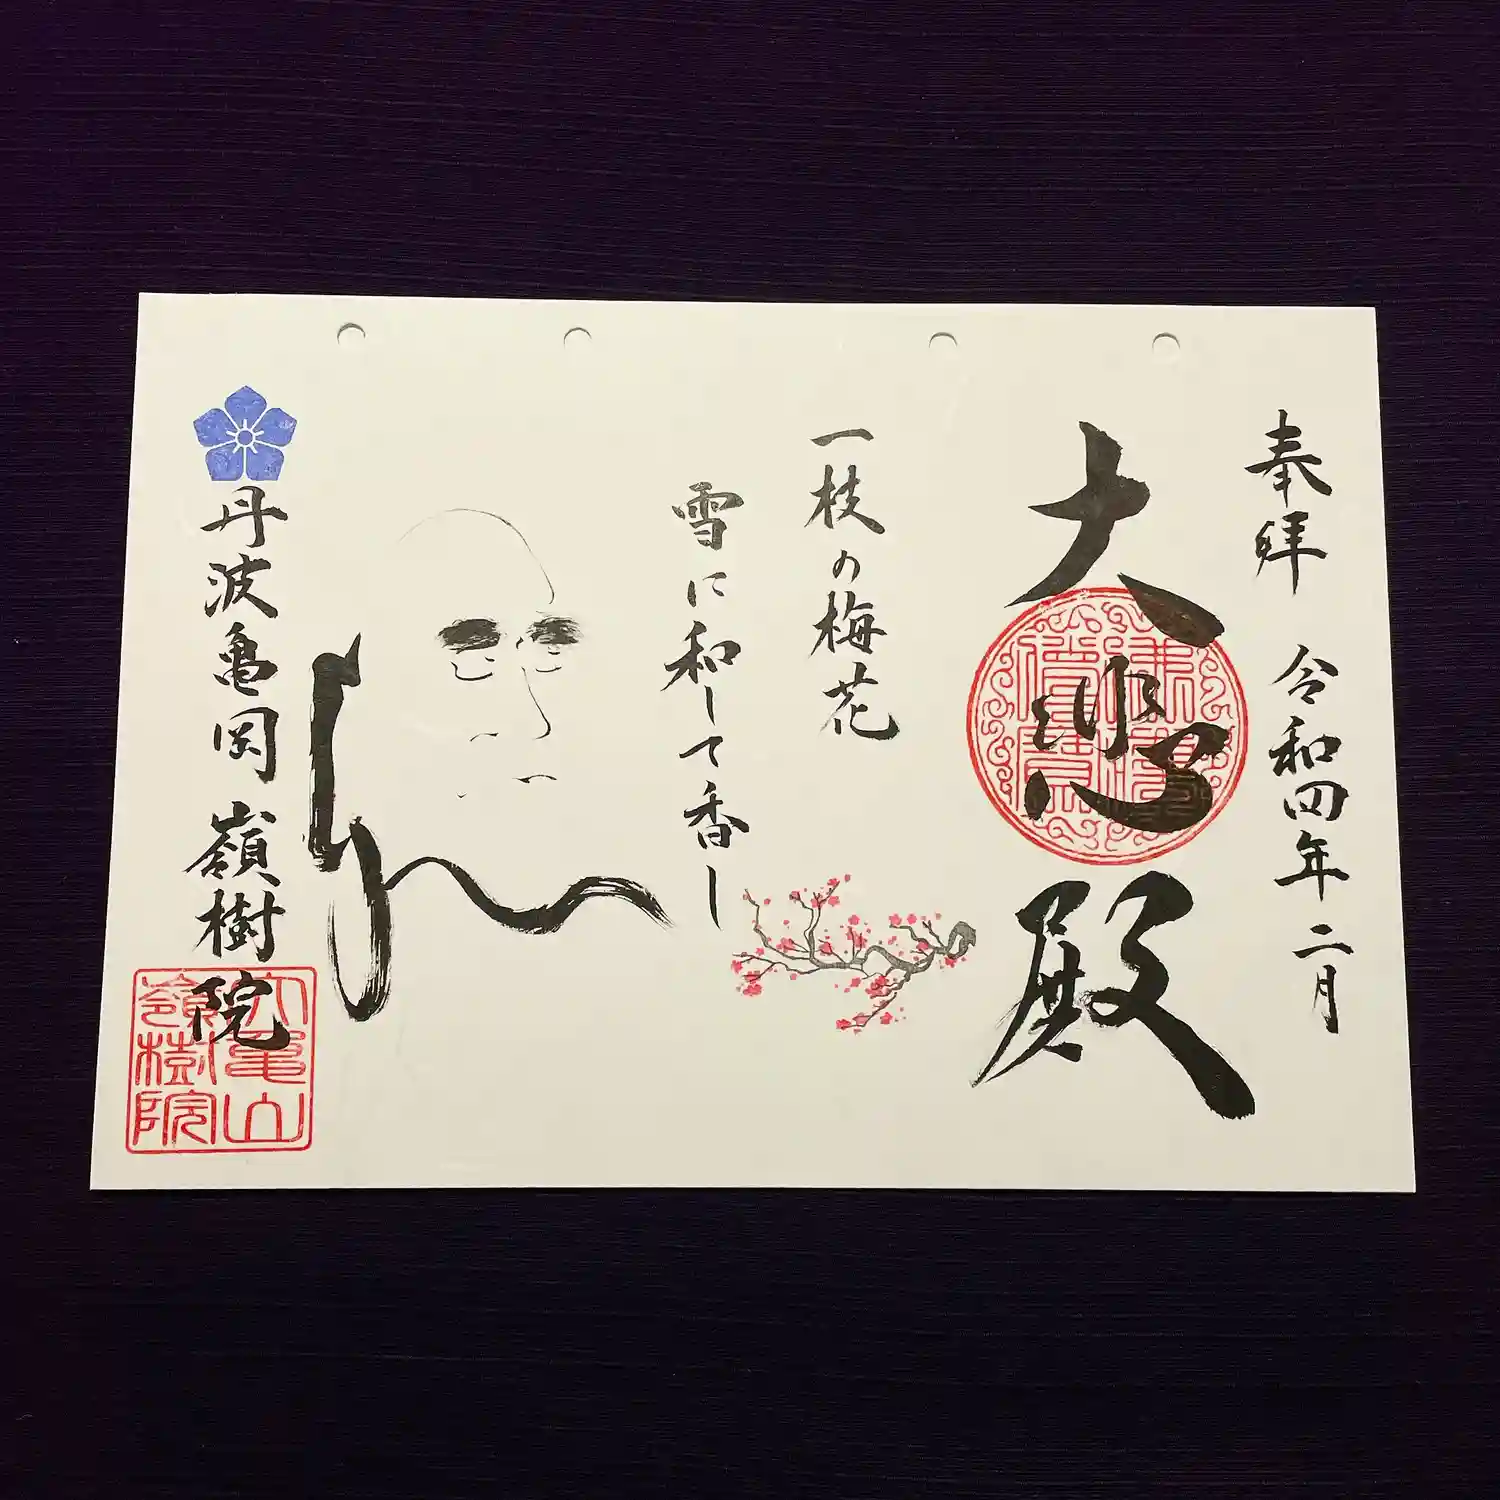 奉拝 令和四年二月
大悲殿
一枝の梅花
雪に和して香し
丹波亀岡 嶺樹院
大亀山
嶺樹院